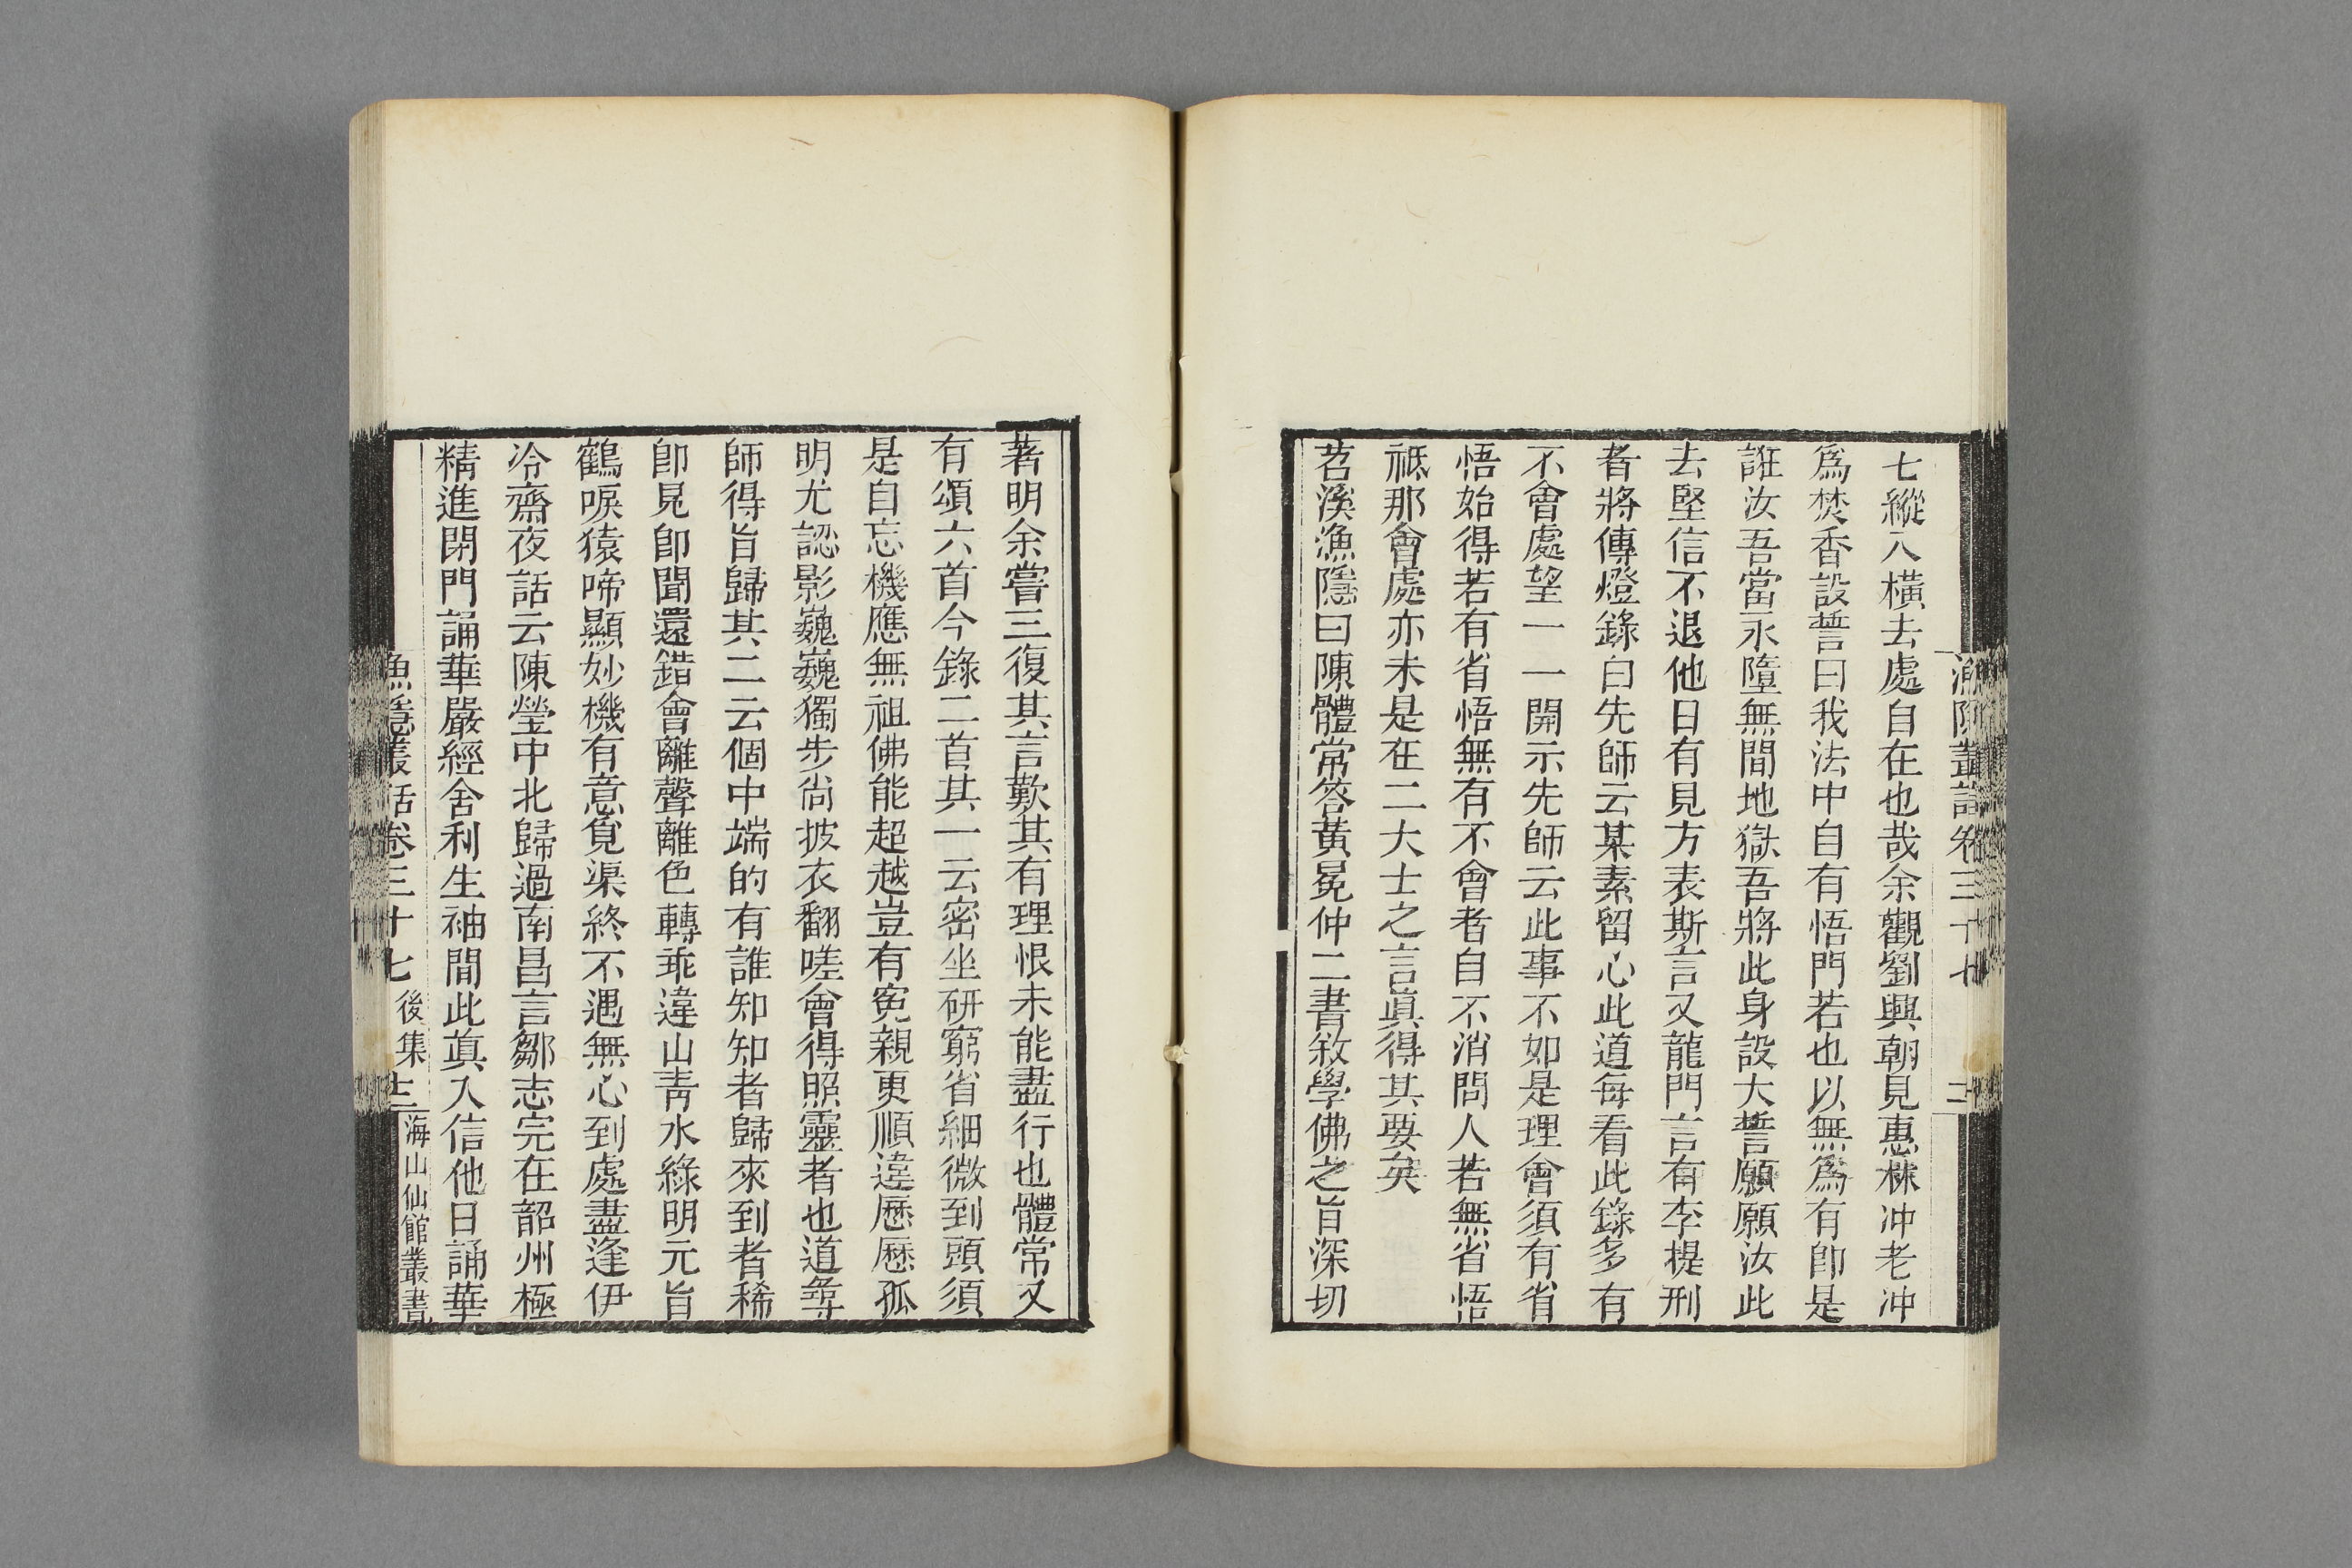 七縱八橫去處自在也哉余觀劉興朝見惠楝冲老冲
爲焚香設誓曰我法中自有悟門若也以無爲有卽是
誑汝吾當永墮無間地獄吾將此身設大誓願願汝此
去堅信不退他日有見方表斯言又龍門言有李提刑
者將傳燈錄白先師云某素留心此道每看此錄多有
不會處望一一開示先師云此事不如是理會須有省
悟始得若有省悟無有不會者自不消問人若無省悟
祗那會處亦未是在二大士之言眞得其要矣
苕溪漁隱曰陳體常答黃冕仲二書敘學佛之旨深切
著明余嘗三復其言歎其有理恨未能盡行也體常又
有頌六首今錄二首其一云密坐研窮省細微到頭須
是自忘機應無祖佛能超越豈有寃親更順違歷歷孤
明尤認影巍巍獨步尙披衣翻嗟會得照靈者也道尋
師得旨歸其二云個中端的有誰知知者歸來到者稀
卽見卽聞還錯會離聲離色轉乖違山靑水綠明元旨
鶴唳猿啼顯妙機有意覓渠終不遇無心到處盡逢伊
冷齋夜話云陳瑩中北歸過南昌言鄒志完在韶州極
精進閉門誦華嚴經舍利生袖間此眞入信他日誦華
漁隱叢話卷三十七 後集 海山仙館叢書